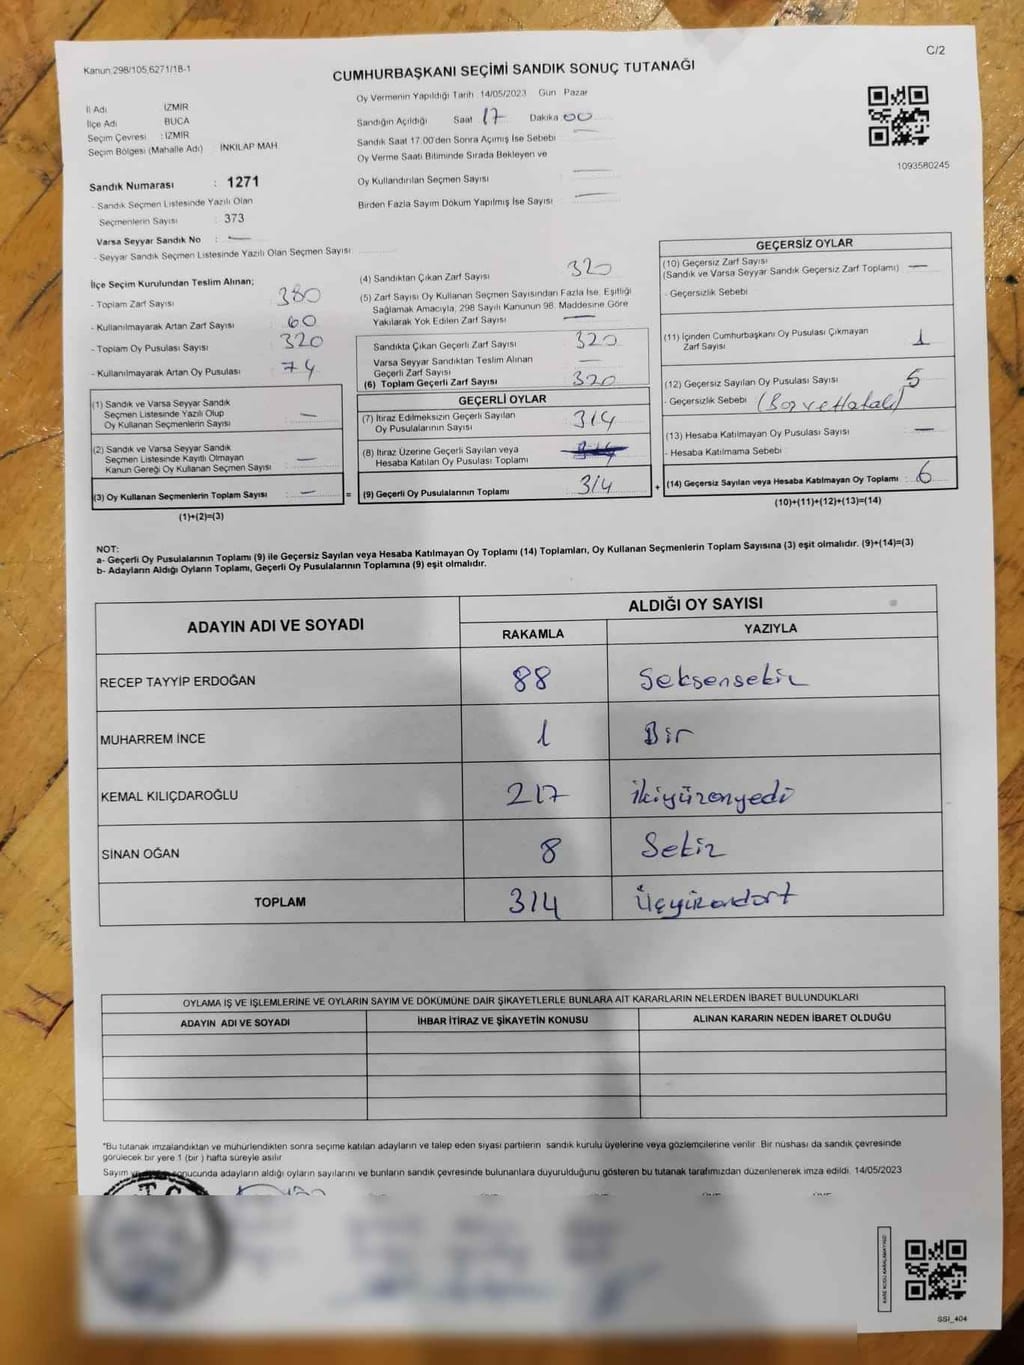 C/2
Kanun 298/105,6271/18-1
CUMHURBAŞKANI SEÇİMİ SANDIK SONUÇ TUTANAĞI
İl Adı İZMİR
İlçe Adı BUCA
Seçim Çevresi : İZMİR
Seçim Bölgesi (Mahalle Adı) İNKILAP MAH
Oy Vermenin Yapıldığı Tarih 14/05/2023 Gün Pazar
Sandığın Açıldığı Saat 17 Dakika 00
Sandık Saat 17.00'den Sonra Açımış İse Sebebi —
Oy Verme Saati Bitiminde Sırada Bekleyen ve
Oy Kullandırılan Seçmen Sayısı —
Birden Fazla Sayım Döküm Yapılmış İse Sayısı —
1093580245
Sandık Numarası : 1271
- Sandık Seçmen Listesinde Yazılı Olan
Seçmenlerin Sayısı : 373
Varsa Seyyar Sandık No : —
- Seyyar Sandık Seçmen Listesinde Yazılı Olan Seçmen Sayısı
İlçe Seçim Kurulundan Teslim Alınan;
- Toplam Zarf Sayısı 380
- Kullanılmayarak Artan Zarf Sayısı 60
- Toplam Oy Pusulası Sayısı 320
- Kullanılmayarak Artan Oy Pusulası 74
(1) Sandık ve Varsa Seyyar Sandık
Seçmen Listesinde Yazılı Olup
Oy Kullanan Seçmenlerin Sayısı —
(2) Sandık ve Varsa Seyyar Sandık
Seçmen Listesinde Kayıtlı Olmayan
Kanun Gereği Oy Kullanan Seçmen Sayısı —
(3) Oy Kullanan Seçmenlerin Toplam Sayısı : — =
(1)+(2)=(3)
(4) Sandıktan Çıkan Zarf Sayısı 320
(5) Zarf Sayısı Oy Kullanan Seçmen Sayısından Fazla İse, Eşitliği
Sağlamak Amacıyla, 298 Sayılı Kanunun 98. Maddesine Göre
Yakılarak Yok Edilen Zarf Sayısı —
Sandıkta Çıkan Geçerli Zarf Sayısı 320
Varsa Seyyar Sandıktan Teslim Alınan
Geçerli Zarf Sayısı —
(6) Toplam Geçerli Zarf Sayısı 320
GEÇERLİ OYLAR
(7) İtiraz Edilmeksizin Geçerli Sayılan
Oy Pusulalarının Sayısı 314
(8) İtiraz Üzerine Geçerli Sayılan veya
Hesaba Katılan Oy Pusulası Toplamı
(9) Geçerli Oy Pusulalarının Toplamı 314 +
GEÇERSİZ OYLAR
(10) Geçersiz Zarf Sayısı
(Sandık ve Varsa Seyyar Sandık Geçersiz Zarf Toplamı) —
- Geçersizlik Sebebi
(11) İçinden Cumhurbaşkanı Oy Pusulası Çıkmayan
Zarf Sayısı 1
(12) Geçersiz Sayılan Oy Pusulası Sayısı 5
- Geçersizlik Sebebi (Boş ve Hatalı)
(13) Hesaba Katılmayan Oy Pusulası Sayısı —
- Hesaba Katılmama Sebebi
(14) Geçersiz Sayılan veya Hesaba Katılmayan Oy Toplamı : 6
(10)+(11)+(12)+(13)=(14)
NOT:
a- Geçerli Oy Pusulalarının Toplamı (9) ile Geçersiz Sayılan veya Hesaba Katılmayan Oy Toplamı (14) Toplamları, Oy Kullanan Seçmenlerin Toplam Sayısına (3) eşit olmalıdır. (9)+(14)=(3)
b- Adayların Aldığı Oyların Toplamı, Geçerli Oy Pusulalarının Toplamına (9) eşit olmalıdır.
ADAYIN ADI VE SOYADI ALDIĞI OY SAYISI
RAKAMLA YAZIYLA
RECEP TAYYİP ERDOĞAN 88 Seksensekiz
MUHARREM İNCE 1 Bir
KEMAL KILIÇDAROĞLU 217 ikiyüzonyedi
SİNAN OĞAN 8 Sekiz
TOPLAM 314 Üçyüzondört
OYLAMA İŞ VE İŞLEMLERİNE VE OYLARIN SAYIM VE DÖKÜMÜNE DAİR ŞİKAYETLERLE BUNLARA AİT KARARLARIN NELERDEN İBARET BULUNDUKLARI
ADAYIN ADI VE SOYADI İHBAR İTİRAZ VE ŞİKAYETİN KONUSU ALINAN KARARIN NEDEN İBARET OLDUĞU
"Bu tutanak imzalandıktan ve mühürlendikten sonra seçime katılan adayların ve talep eden siyasi partilerin sandık kurulu üyelerine veya gözlemcilerine verilir. Bir nüshası da sandık çevresinde
görülecek bir yere 1 (bir) hafta süreyle asılır
Sayım sonucunda adayların aldığı oyların sayılarını ve bunların sandık çevresinde bulunanlara duyurulduğunu gösteren bu tutanak tarafımızdan düzenlenerek imza edildi. 14/05/2023
T.C.
KARE KODU KARALAMAYINIZ!
SSI_404